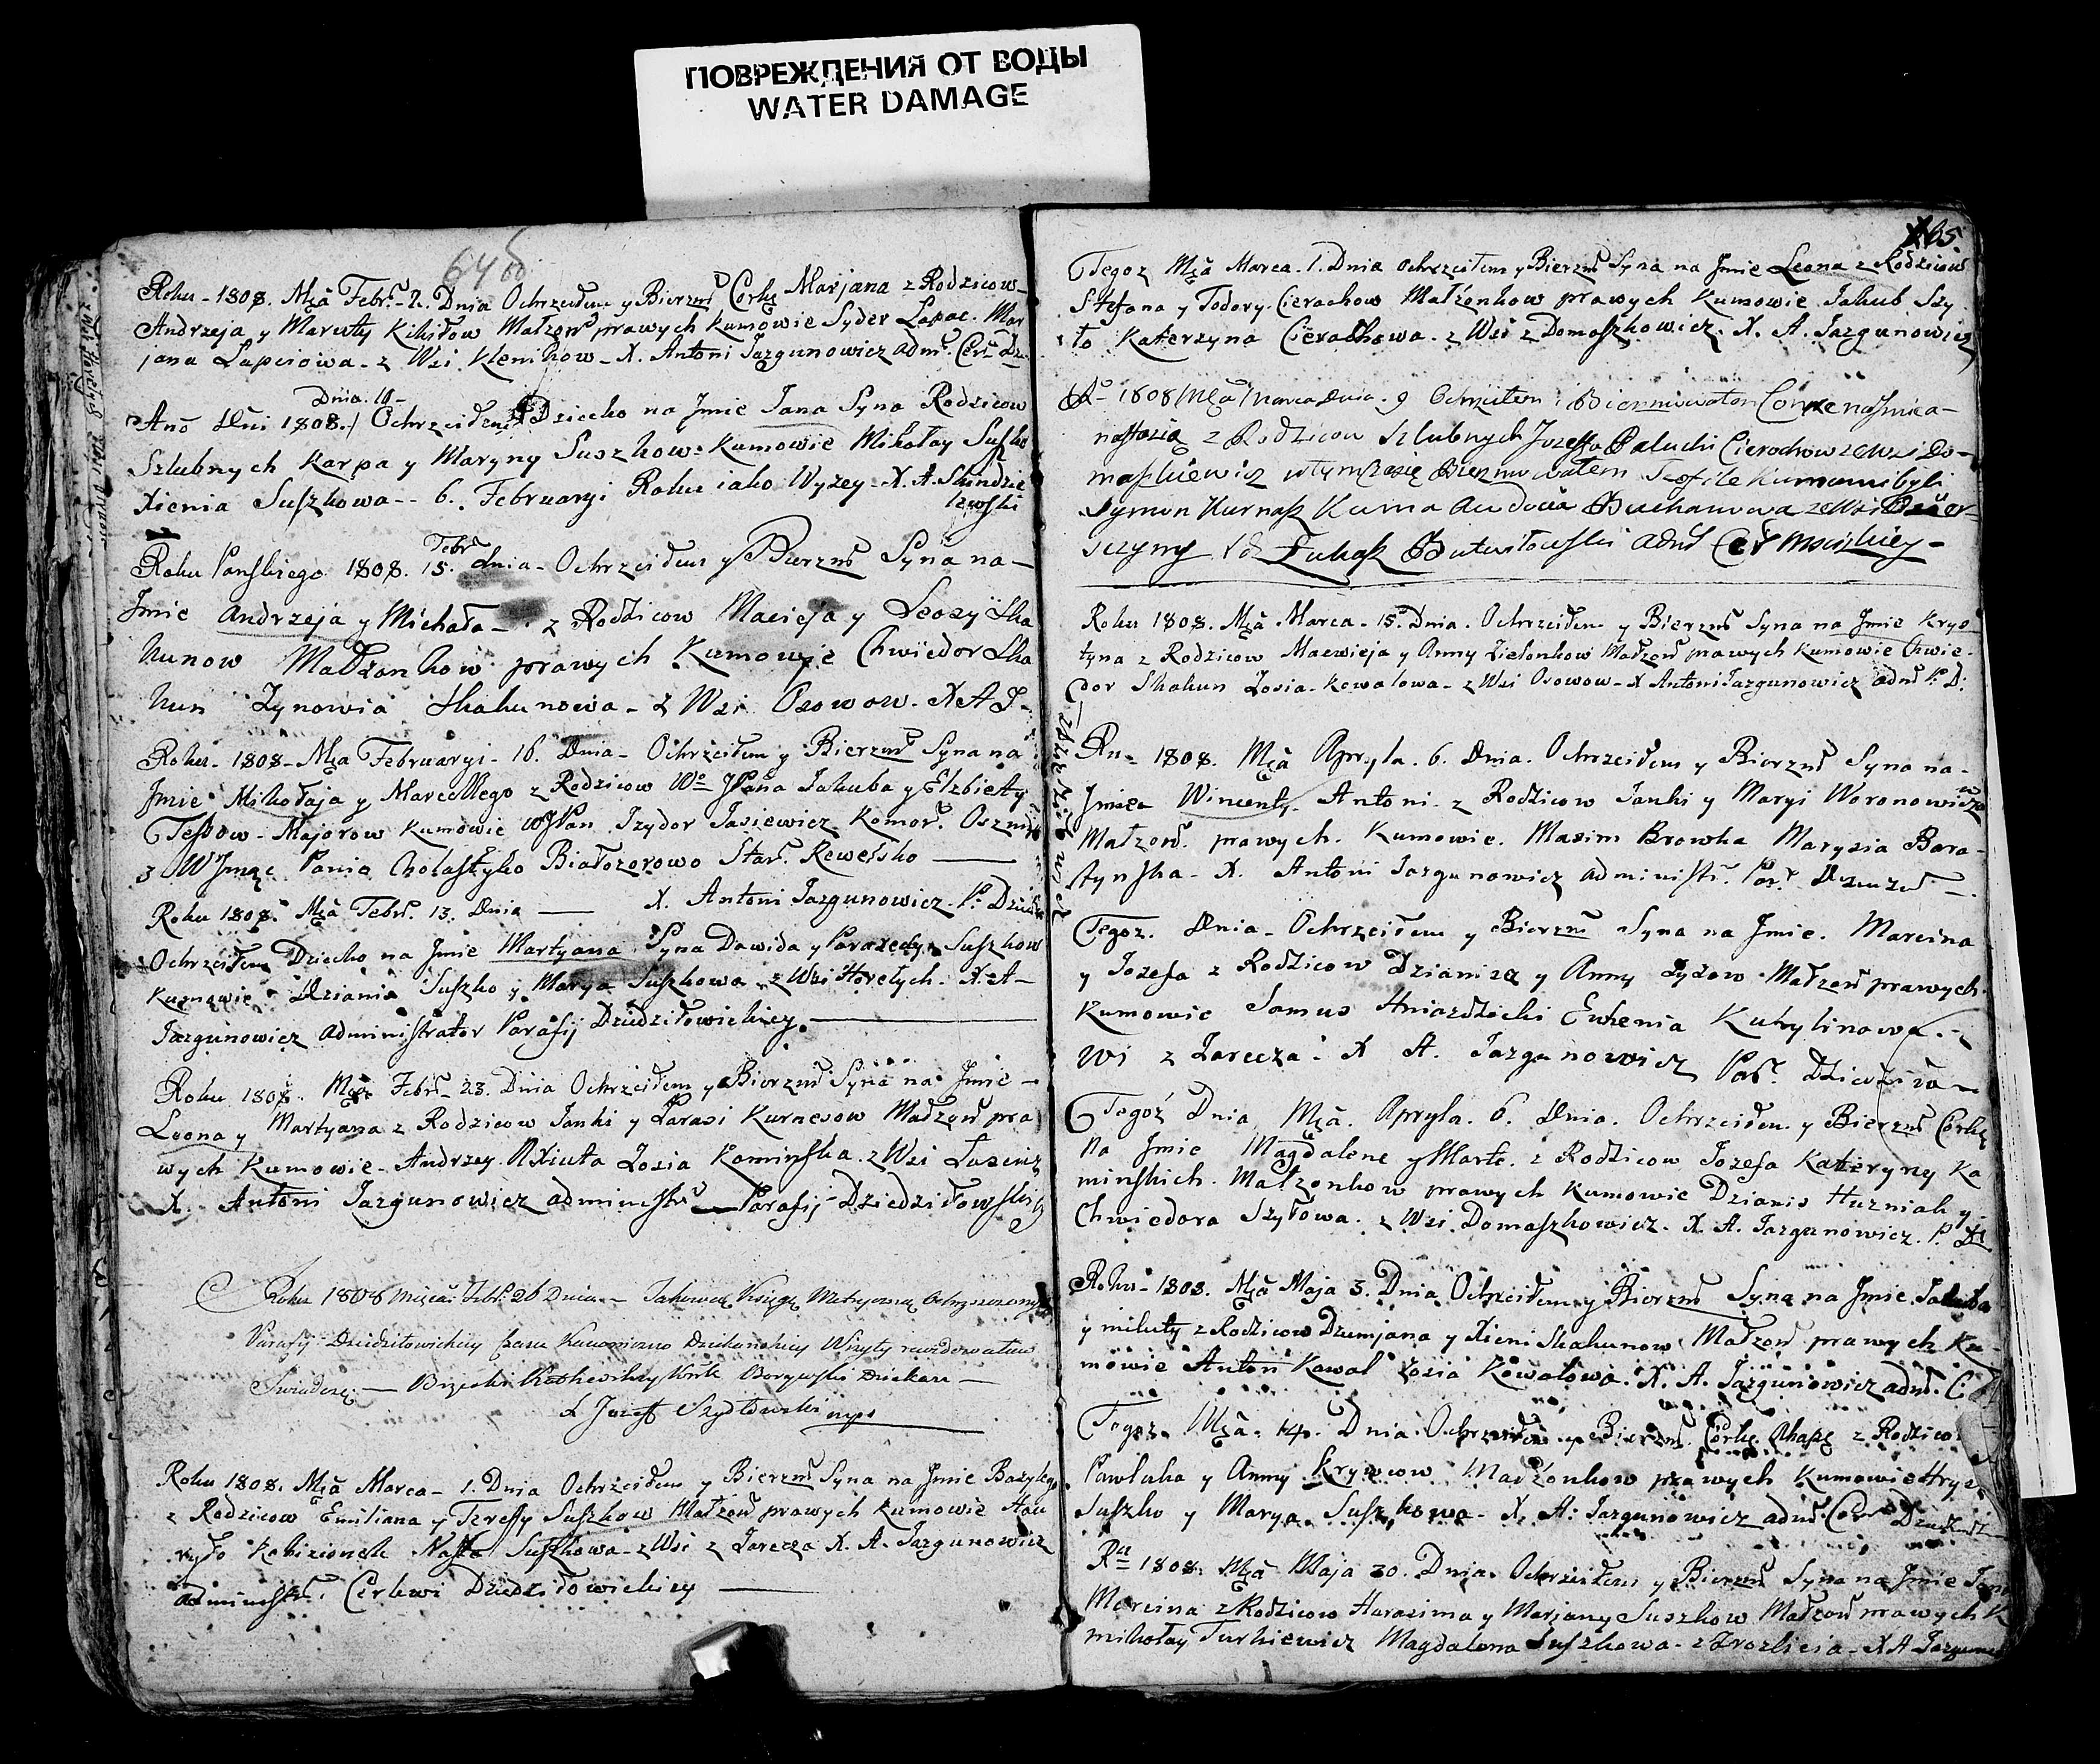 ПОВРЕЖДЕНИЯ ОТ ВОДЫ
WATER DAMAGE
64 об
Roku - 1808. Mcā Febr. - 2. Dnia Ochrzciłem y Bierzm Corkę Marjana z Rodzicow
Andrzeja y Maruty Kikiłow Małżon prawych Kumowie Syder Lapac. Mar
jana Lapciowa - z Wsi Klenikow - X. Antoni Jazgunowicz adm. Cer. Dz.
Dnia. 10 -
Ano Dni 1808. Ochrzciłem Dziecko na Jmie Jana Syna Rodzicow
Szlubnych Karpa y Maryny Suszkow. Kumowie Mikołay Suszko
Xienia Suszkowa - - 6. Februaryi Roku iako Wyzey X. A. Skindzie
lewski
Roku Panskiego 1808. 15. Febr dnia - Ochrzciłem y Bierzm Syna na -
Jmie Andrzeja y Michała - z Rodzicow Macieja y Leosy Ska
kunow Małżonkow prawych Kumowie Chwiedor Ska
kun Zynowia Skakunowa - z Wsi Osowow. X A J -
Roku - 1808 - Mca Februaryi - 16. Dnia - Ochrzciłem y Bierzm Syna na
Jmie Mikołaja y Marcellego z Rodzicow W JPana Jakuba y Elzbiety
Majorow Kumowie WJPan Jzydor Jasiewicz Komor. Oszmi
z WJmsc Pania Cholastyko Białozorowo Star. Rewelsko
X. Antoni Jazgunowicz. P. Dzied
Roku 1808. Mcā Febr. 13. Dnia
Ochrzciłem Dziecko na Jmie Martyana Syna Dawida y Paraxedy Suszkow
Kumowie Dziania Suszko y Marya Suszkowa z Wsi Horełych. X. A -
Jazgunowicz administrator Parafij Dziedziłowickiey.
Roku 1808. Mca Febr - 23. Dnia Ochrzciłem y Bierzm Syna na Jmie -
Leona y Martyana z Rodzicow Janki y Tarasi Kurnesow Małżon pra
wych Kumowie - Andrzey Axiuta Zosia Kaminska. z Wsi
X. Antoni Jazgunowicz administr Parafij Dziedziłowskiey
Roku 1808 Miesca Febr. 26 Dnia - Takowę Księgę Metryczną Ochrzczonych
Parafij Dziedziłowickiey Czasu Dziekanskiey Wizyty rewidowałem
Swiadczę - Dziekan -
X Jozeff Szydłowski mpr
Roku 1808. Mcā Marca - 1. Dnia Ochrzciłem y Bierzm Syna na Jmie Bazylego
z Rodzicow Emiliana y Teressy Suszkow Małżon prawych Kumowie Hau
ryło Kabizionek Nasta Suszkowa - z Wsi z Zarecza X. A. Jazgunowicz
administr. Cerkwi Dziedziłowickiey
65.
Tegoz Mcā Marca. 1. Dnia Ochrzciłem y Bierzm Syna na Jmie Leona z Rodzicow
Stefana y Todory. Cierachow Małżonkow prawych Kumowie Jakub Szy
to Katerzyna Cierachowa. z Wsi z Domaszkowicz. X. A. Jazgunowicz
1808 Mcā Marca Dnia. 9 Ochrzciłem i Bierzmowałem Corkę na Jmie A -
nastazią z Rodzicow Szlubnych Jozeffa Paluchi Cierochow ze Wsi Do -
maszkiewicz w tymczasie Bierzmowałem Teofile Kumami byli
Symon Kurnasz Kuma Audocia Buchanowa ze Wsi
Łukasz Butwiłowski
Roku 1808. Mcā Marca - 15. Dnia. Ochrzciłem y Bierzm Syna na Jmie Krys
tyna z Rodzicow Macwieja y Anny Zielonkow Małżon prawych Kumowie Chwie -
dor Skakun Zosia Kowalowa - z Wsi Osowow - X Antoni Jazgunowicz adm P. D.
Ru - 1808. Mcā Apryla. 6. Dnia. Ochrzciłem y Bierzm Syna na -
Jmiea Wincenty. Antoni z Rodzicow Janki y Maryi Woronowicza
Małżon. prawych. Kumowie. Maxim Browka Marysia Bara -
tynska - X. Antoni Jazgunowicz administr. Par.
Tegoz. Dnia - Ochrzciłem y Bierzm Syna na Jmie. Marcina
y Jozefa z Rodzicow Dzianisa y Anny Małżon prawych.
Kumowie Samus Hniazdzicki Euhenia Kurylinowa. -
Wi z Zarecza. X A. Jazgunowicz Par.
Tegoż Dnia Mcā. Apryla. 6. Dnia. Ochrzciłem y Bierzm Corkę
na Jmie Magdalene y Marte. z Rodzicow Jozefa Kateryny Ka
minskich. Małżonkow prawych Kumowie Dzianis Huzniak y
Chwiedora Szyłowa. z Wsi Domaszkowicz. X. A. Jazgunowicz. P. Dz
Roku - 1808. Mcā Maja 3. Dnia Ochrzciłem y Bierzm Syna na Jmie Jakuba
y miluty z Rodzicow Dzmjana y Xieni Skakunow Małżon prawych Ku
mowie Anton Kowal Zosia Kowalowa. X. A. Jazgunowicz adm. C.
Tegoz. Mcā. 14. Dnia Ochrzciłem y Bierzm. Corkę Ahapę z Rodzicow
Pawluka y Anny Małżonkow prawych Kumowie Hryc
Suszko y Marya Suszkowa - X. A: Jazgunowicz adm. Cer
Ru 1808. Mcā Maja 30. Dnia Ochrzciłem y Bierzm Syna na Jmie Jana
Marcina z Rodzicow Harasima y Marjany Suszkow Małżon prawych K
mikołay Turkiewicz Magdalena Suszkowa - X A Jazguno